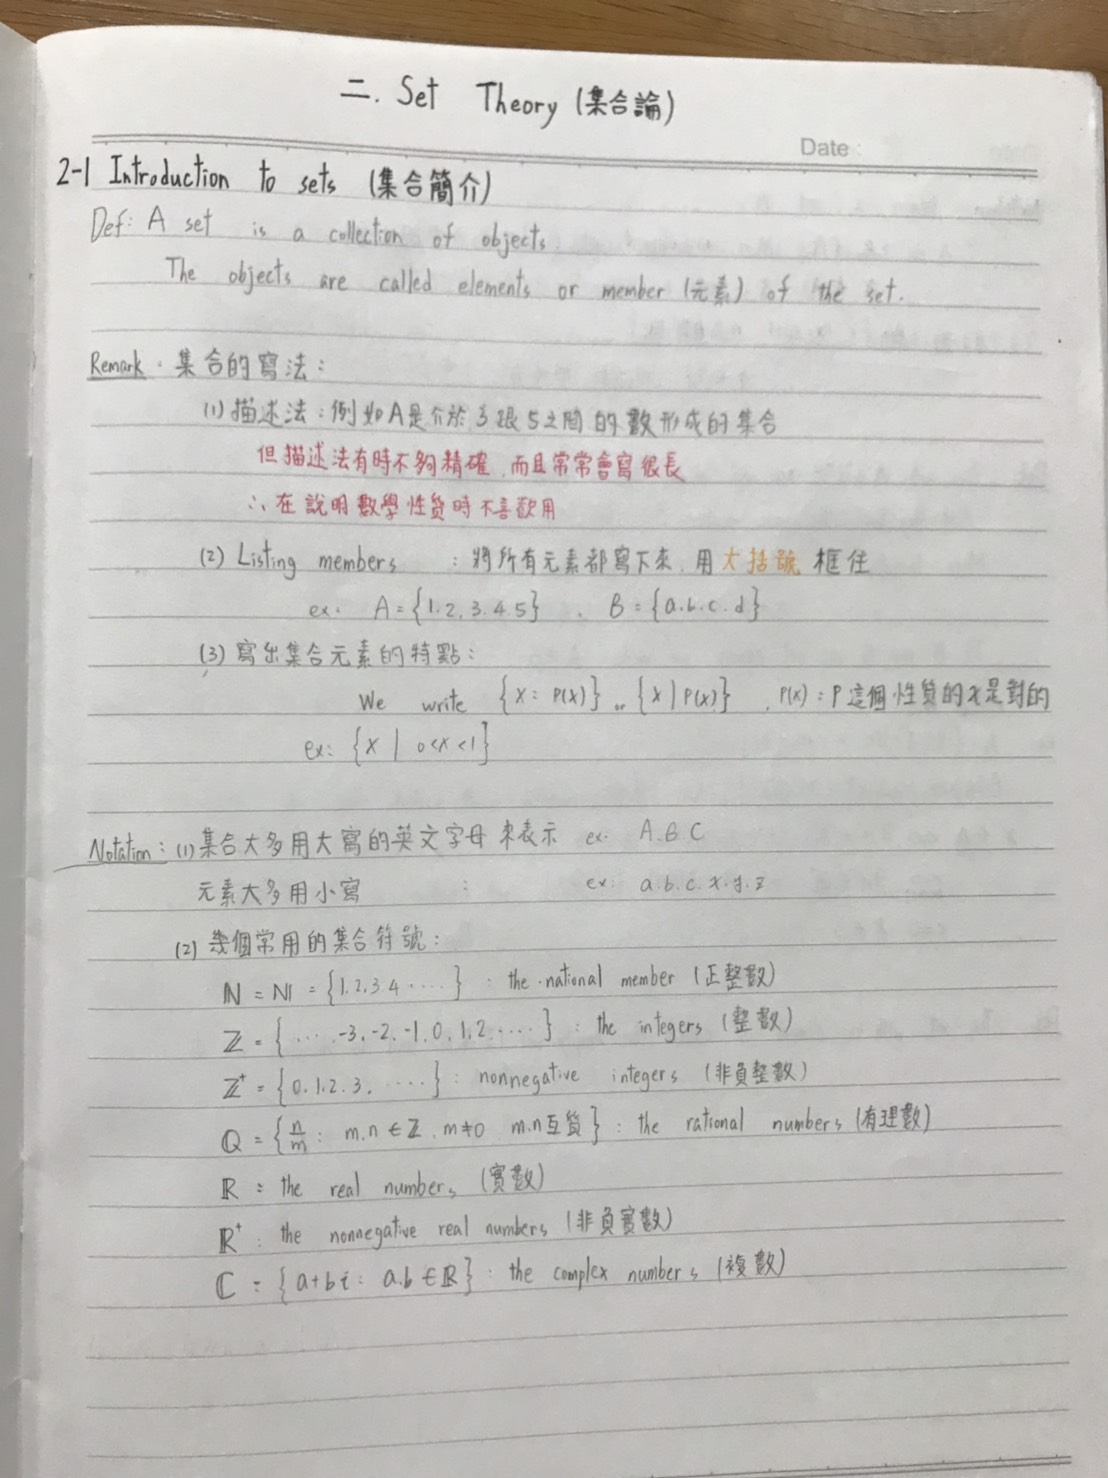 二. Set Theory (集合論)
Date :
2-1 Introduction to sets (集合簡介)
Def: A set is a collection of objects.
The objects are called elements or member (元素) of the set.
Remark. 集合的寫法:
(1) 描述法: 例如A是介於3跟5之間的數形成的集合
但描述法有時不夠精確,而且常常會寫很長
∴在說明數學性質時不喜歡用
(2) Listing members : 將所有元素都寫下來,用大括號框住
ex. A={1.2.3.4.5} , B={a.b.c.d}
(3) 寫出集合元素的特點:
We write {x: P(x)} or {x|P(x)} , P(x): P這個性質的x是對的
ex: {x | 0<x<1}
Notation: (1) 集合大多用大寫的英文字母來表示 ex. A.B.C
元素大多用小寫 : ex: a.b.c.x.y.z
(2) 幾個常用的集合符號:
ℕ = N = {1.2.3.4.....} : the national member (正整數)
ℤ = {....-3,-2,-1,0,1,2.....} : the integers (整數)
ℤ⁺ = {0.1.2.3.....} : nonnegative integers (非負整數)
ℚ = {n/m : m.n∈ℤ, m≠0, m.n互質} : the rational numbers (有理數)
ℝ : the real numbers (實數)
ℝ⁺ : the nonnegative real numbers (非負實數)
ℂ = {a+bi : a.b∈ℝ} : the complex numbers (複數)